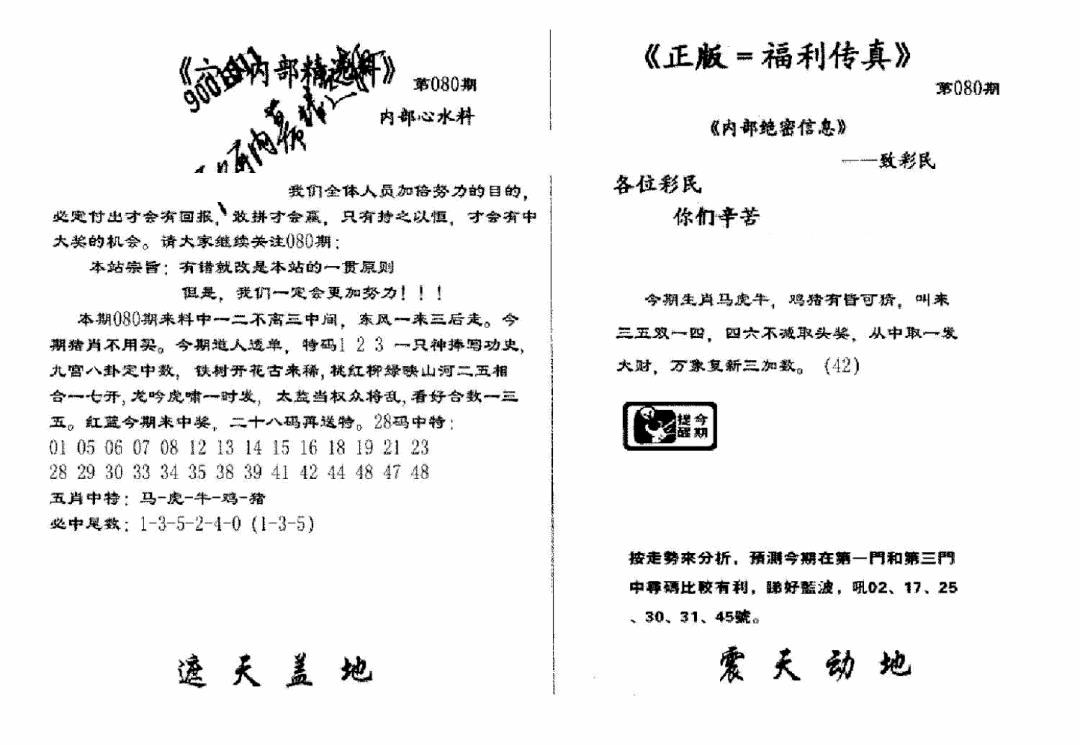 内部精选料》
第080期
内部心水料
我们全体人员加倍努力的目的，
必定付出才会有回报，敢拼才会赢，只有持之以恒，才会有中
大奖的机会。请大家继续关注080期：
本站宗旨：有错就改是本站的一贯原则
但是，我们一定会更加努力！！！
本期080期来料中一二不离三中间，东风一来三后走。今
期猪肖不用买。今期道人透单，特码1 2 3 一只神捧写功史，
九宫八卦定中数，铁树开花古来稀，桃红柳绿映山河二五相
合一七开，龙吟虎啸一时发，太监当权众将乱，看好合数一三
五。红蓝今期来中奖，二十八码再送特。28码中特：
01 05 06 07 08 12 13 14 15 16 18 19 21 23
28 29 30 33 34 35 38 39 41 42 44 48 47 48
五肖中特：马-虎-牛-鸡-猪
必中尾数：1-3-5-2-4-0 (1-3-5)
遮天盖地
《正版=福利传真》
第080期
《内部绝密信息》
——致彩民
各位彩民
你们辛苦
今期生肖马虎牛，鸡猪有皆可猜，叫来
三五双一四，四六不减取头奖，从中取一发
大财，万象复新三加数。(42)
今期
提醒
按走勢來分析，預測今期在第一門和第三門
中尋碼比較有利，睇好藍波，吼02、17、25
、30、31、45號。
震天动地